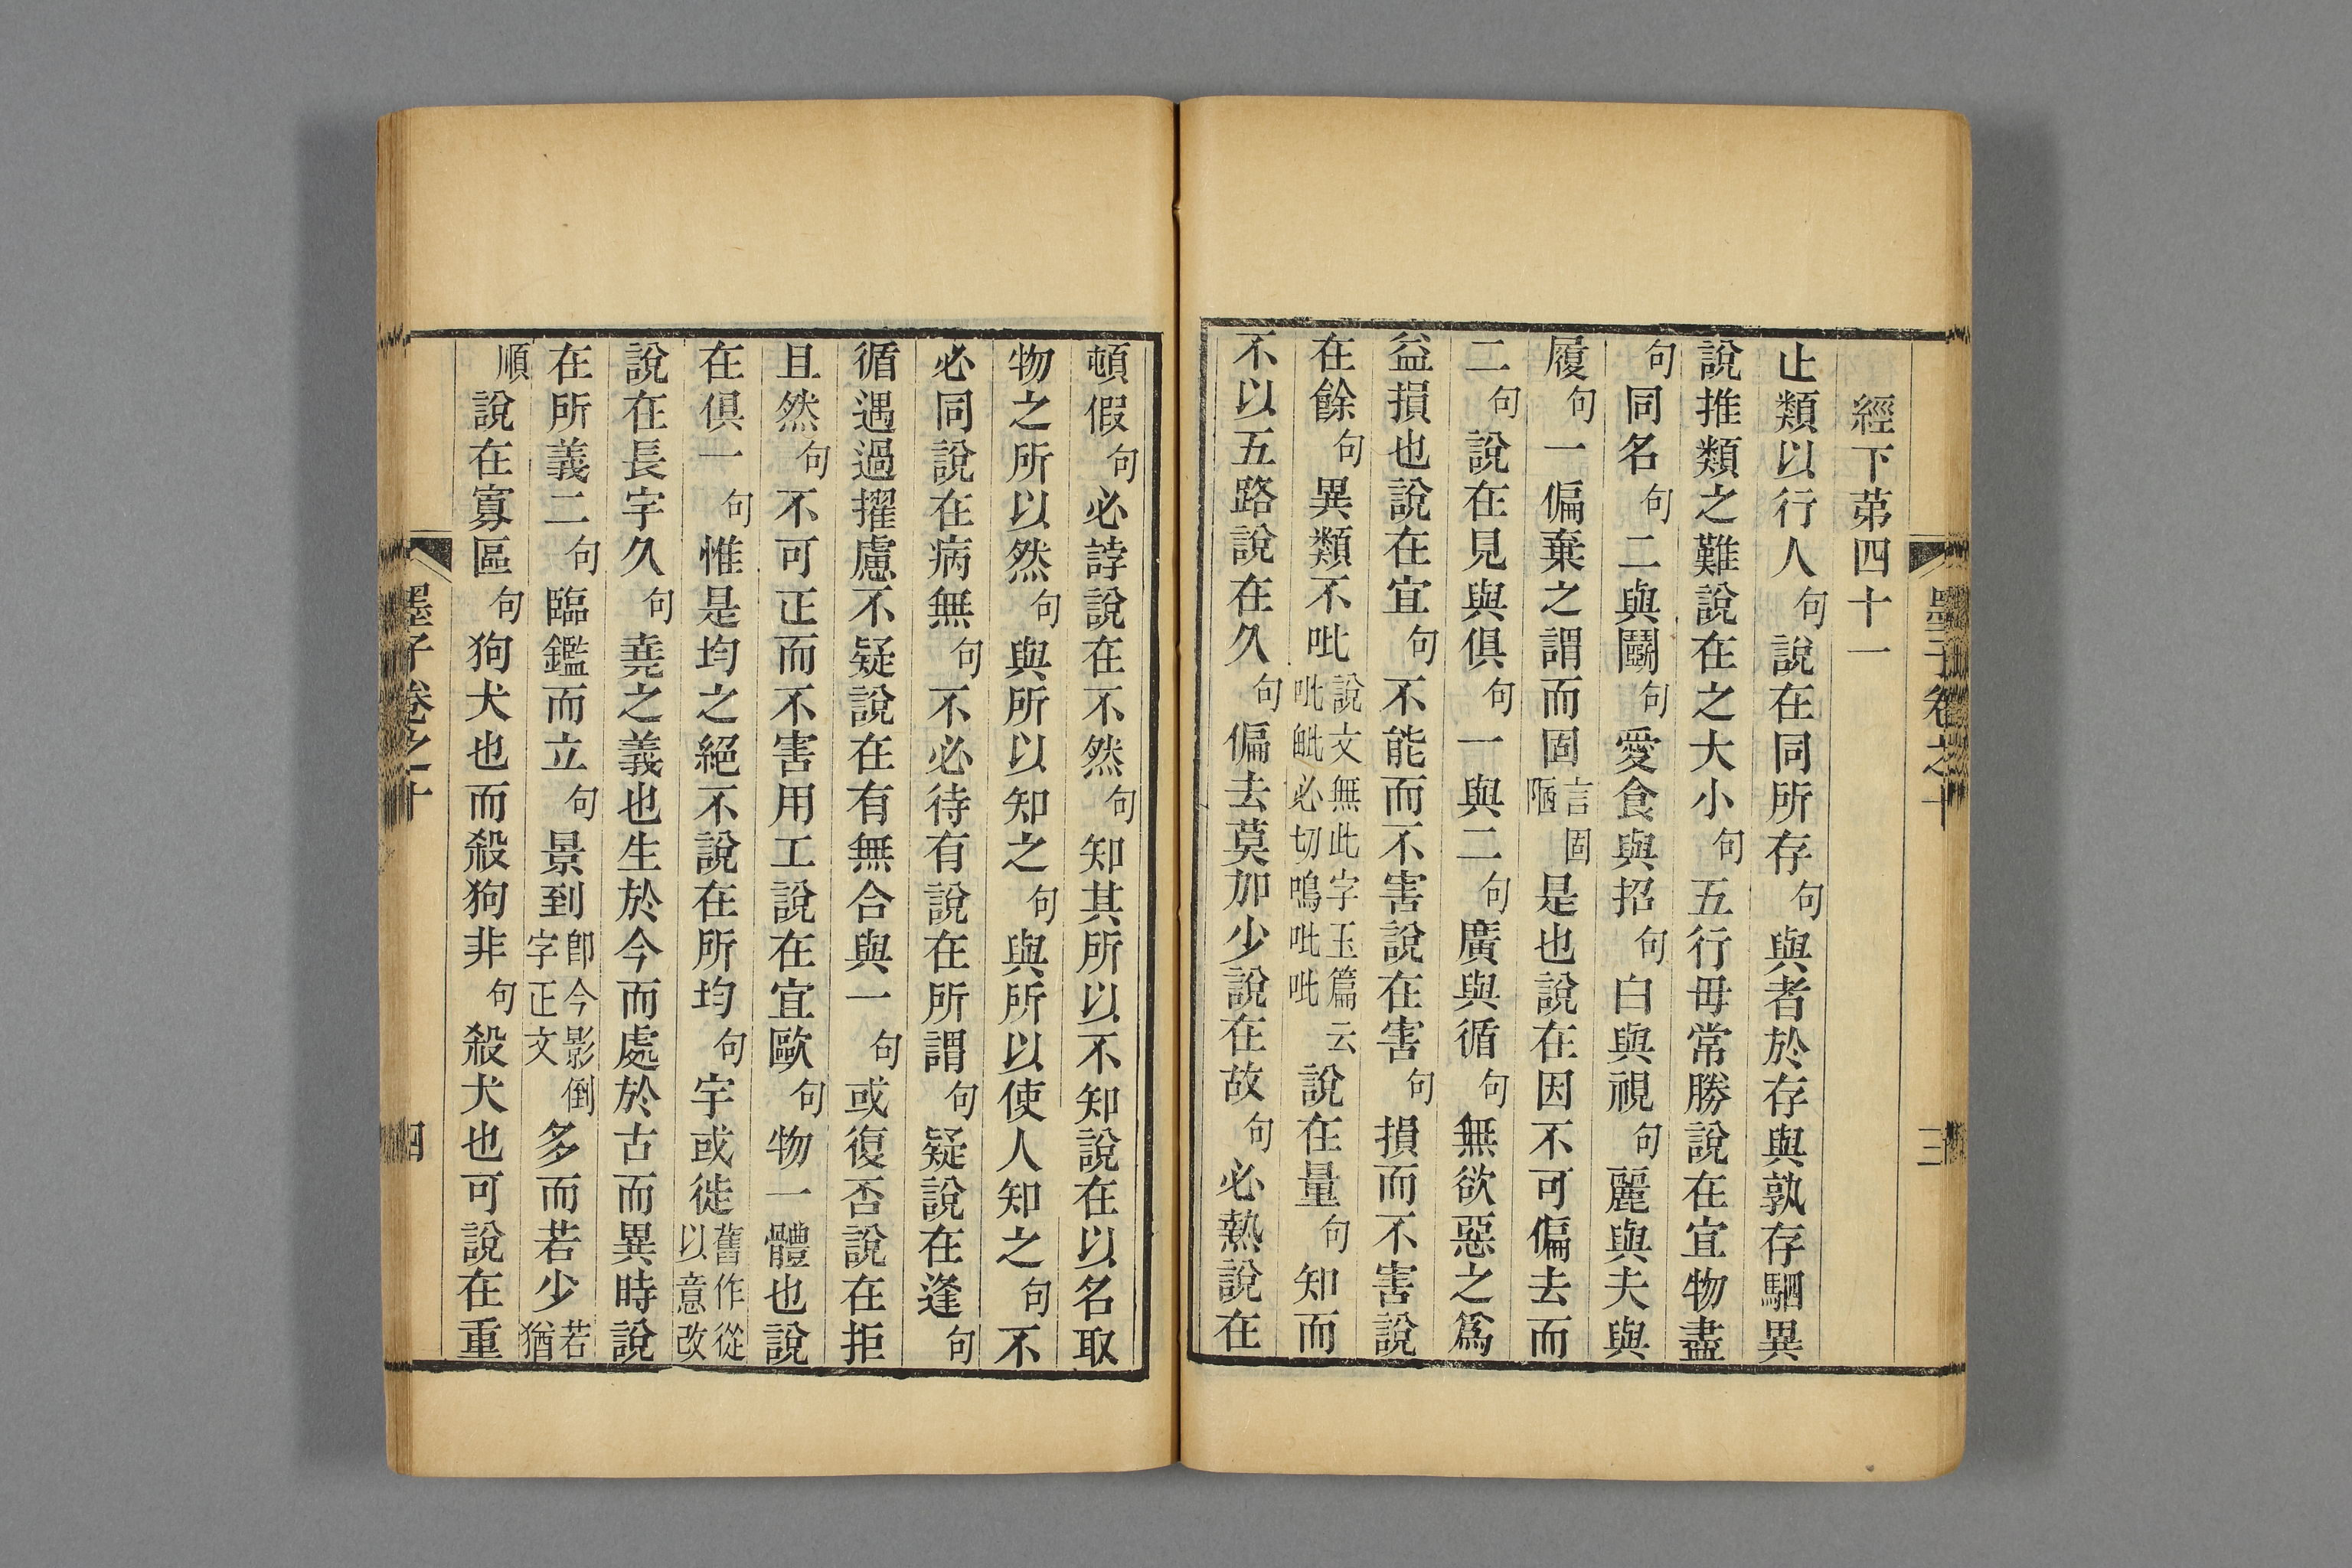 墨子卷之十 三
經下苐四十一
止類以行人句說在同所存句與者於存與孰存駟異
說推類之難說在之大小句五行毋常勝說在宜物盡
句同名句二與鬭句愛食與招句白與視句麗與夫與
履句一偏棄之謂而固言固陋是也說在因不可偏去而
二句說在見與俱句一與二句廣與循句無欲惡之爲
益損也說在宜句不能而不害說在害句損而不害說
在餘句異類不吡說文無此字玉篇云吡毗必切鳴吡吡說在量句知而
不以五路說在久句偏去莫加少說在故句必熱說在
頓假句必誖說在不然句知其所以不知說在以名取
物之所以然句與所以知之句與所以使人知之句不
必同說在病無句不必待有說在所謂句疑說在逢句
循遇過擢慮不疑說在有無合與一句或復否說在拒
且然句不可正而不害用工說在宜歐句物一體也說
在俱一句惟是均之絕不說在所均句宇或徙舊作從以意改
說在長宇久句堯之義也生於今而處於古而異時說
在所義二句臨鑑而立句景到卽今影倒字正文多而若少若猶
順說在寡區句狗犬也而殺狗非句殺犬也可說在重
墨子卷之十 四